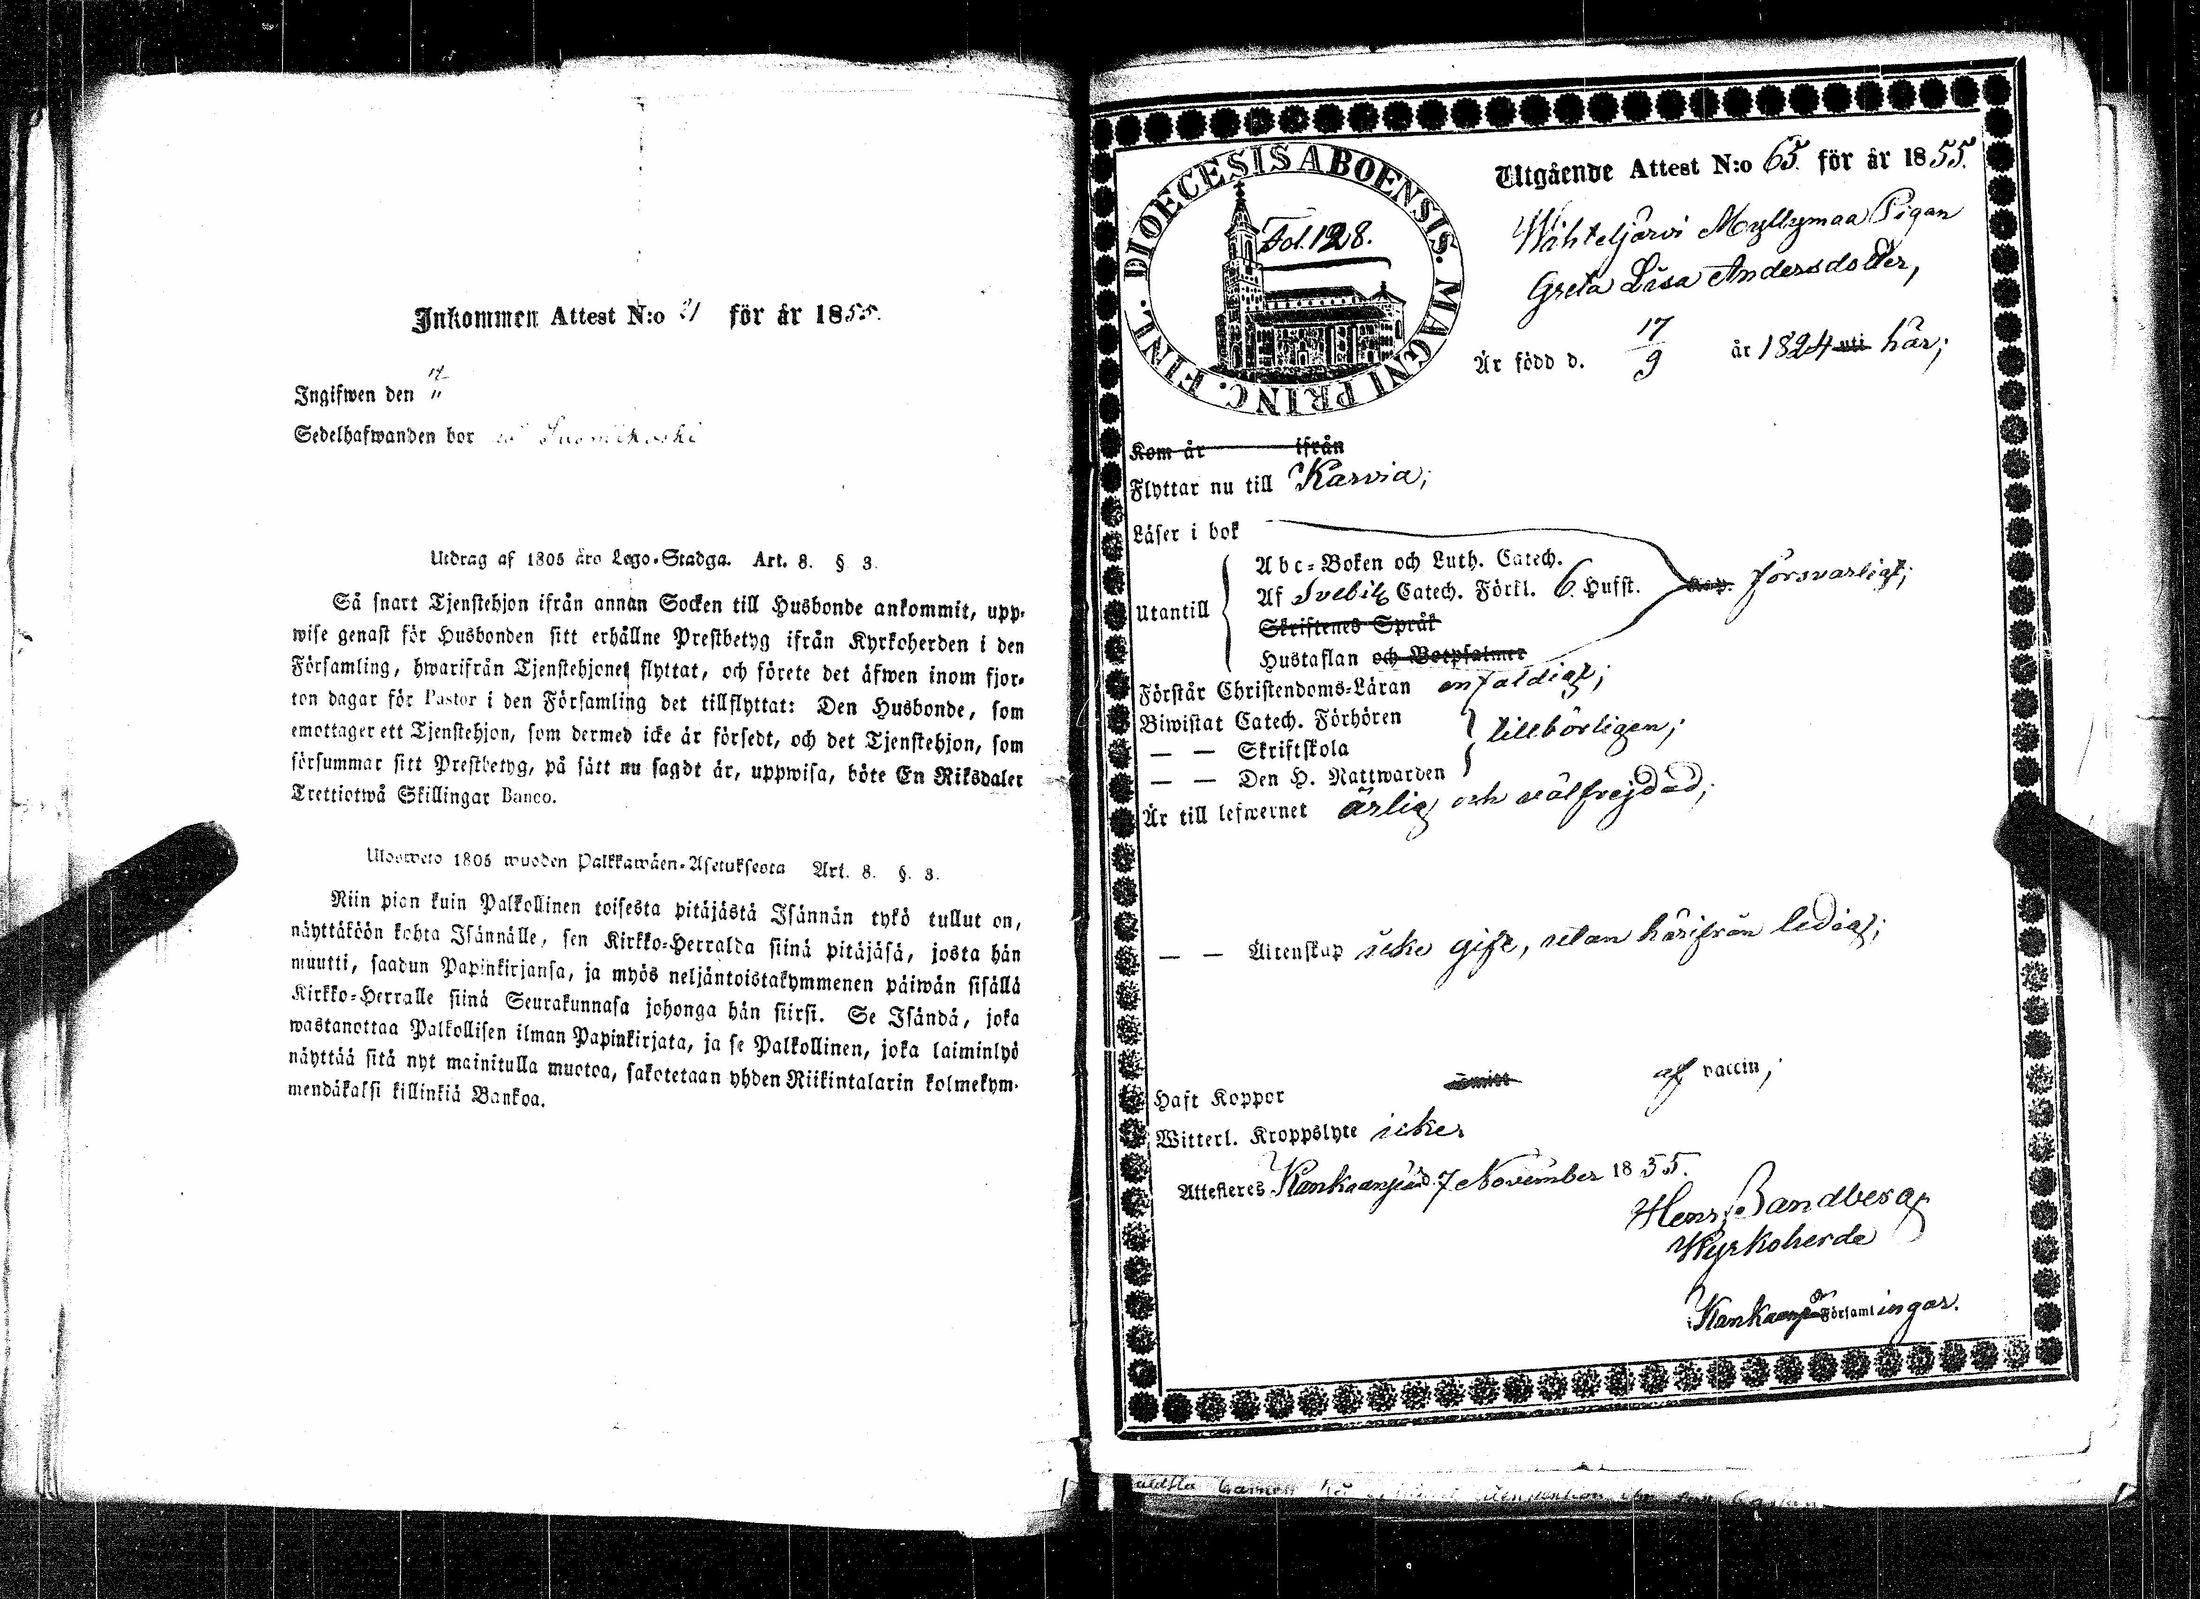 Inkommen Attest N:o 21 för år 1855.
Ingifwen den 17/11
Sedelhafwanden bor Suomikoski
Utdrag af 1805 års Lego-Stadga. Art. 8. § 3.
Så snart Tjenstehjon ifrån annan Socken till Husbonde ankommit, upp-
wise genast för Husbonden sitt erhållne Prestbetyg ifrån Kyrkoherden i den
Församling, hwarifrån Tjenstehjonet flyttat, och förete det äfwen inom fjor-
ton dagar för Pastor i den Församling det tillflyttat: Den Husbonde, som
emottager ett Tjenstehjon, som dermed icke är försedt, och det Tjenstehjon, som
försummar sitt Prestbetyg, på sätt nu sagdt är, uppwisa, böte En Riksdaler
Trettiotwå Skillingar Banco.
Ulosweto 1805 wuoden Palkkawäen-Asetuksesta Art. 8. §. 3.
Niin pian kuin Palkollinen toisesta pitäjästä Isännän tykö tullut on,
näyttäköön kohta Isännälle, sen Kirkko-Herralda siinä pitäjäsä, josta hän
muutti, saadun Papinkirjansa, ja myös neljäntoistakymmenen päiwän sisällä
Kirkko-Herralle siinä Seurakunnasa johonga hän siirsi. Se Isändä, joka
wastanottaa Palkollisen ilman Papinkirjata, ja se Palkollinen, joka laiminlyö
näyttää sitä nyt mainitulla muotoa, sakotetaan yhden Riikintalarin kolmekym-
mendäkaksi killinkiä Bankoa.
DIOECESIS ABOENSIS. MAGNI PRINC. FINL.
Fol. 128.
Utgående Attest N:o 65. för år 1855.
Wihteljärvi Myllymaa Pigan
Greta Lisa Andersdotter,
Är född d. 17/9 år 1824 uti här;
Kom år ifrån
Flyttar nu till Karvia;
Läser i bok
Utantill
Abc-Boken och Luth. Catech.
Af Svebilii Catech. Förkl. 6 Hufst. Kap. försvarligt;
Skriftenes Språk
Hustaflan och Botpsalmer
Förstår Christendoms-Läran enfaldigt;
Biwistat Catech. Förhören
— — Skriftskola tillbörligen;
— — Den H. Nattwarden
Är till lefwernet ärlig och välfrejdad;
— — Äktenskap icke gift, utan härifrån ledig;
Haft Koppor af vaccin;
Witterl. Kroppslyte icke
Attesteres Kankaanpää d. 7 November 1855.
Henr. Sandberg
Kyrkoherde
Kankaanpää Församlingar.